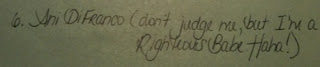 6. Ani DiFranco (don't judge me, but I'm a
Righteous Babe Haha!)